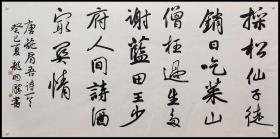 採松仙子徒
銷日吃菜山
僧枉過生多
謝藍田王少
府人間詩酒
冣関情
唐施肩吾詩一首
癸巳夏龍開勝書